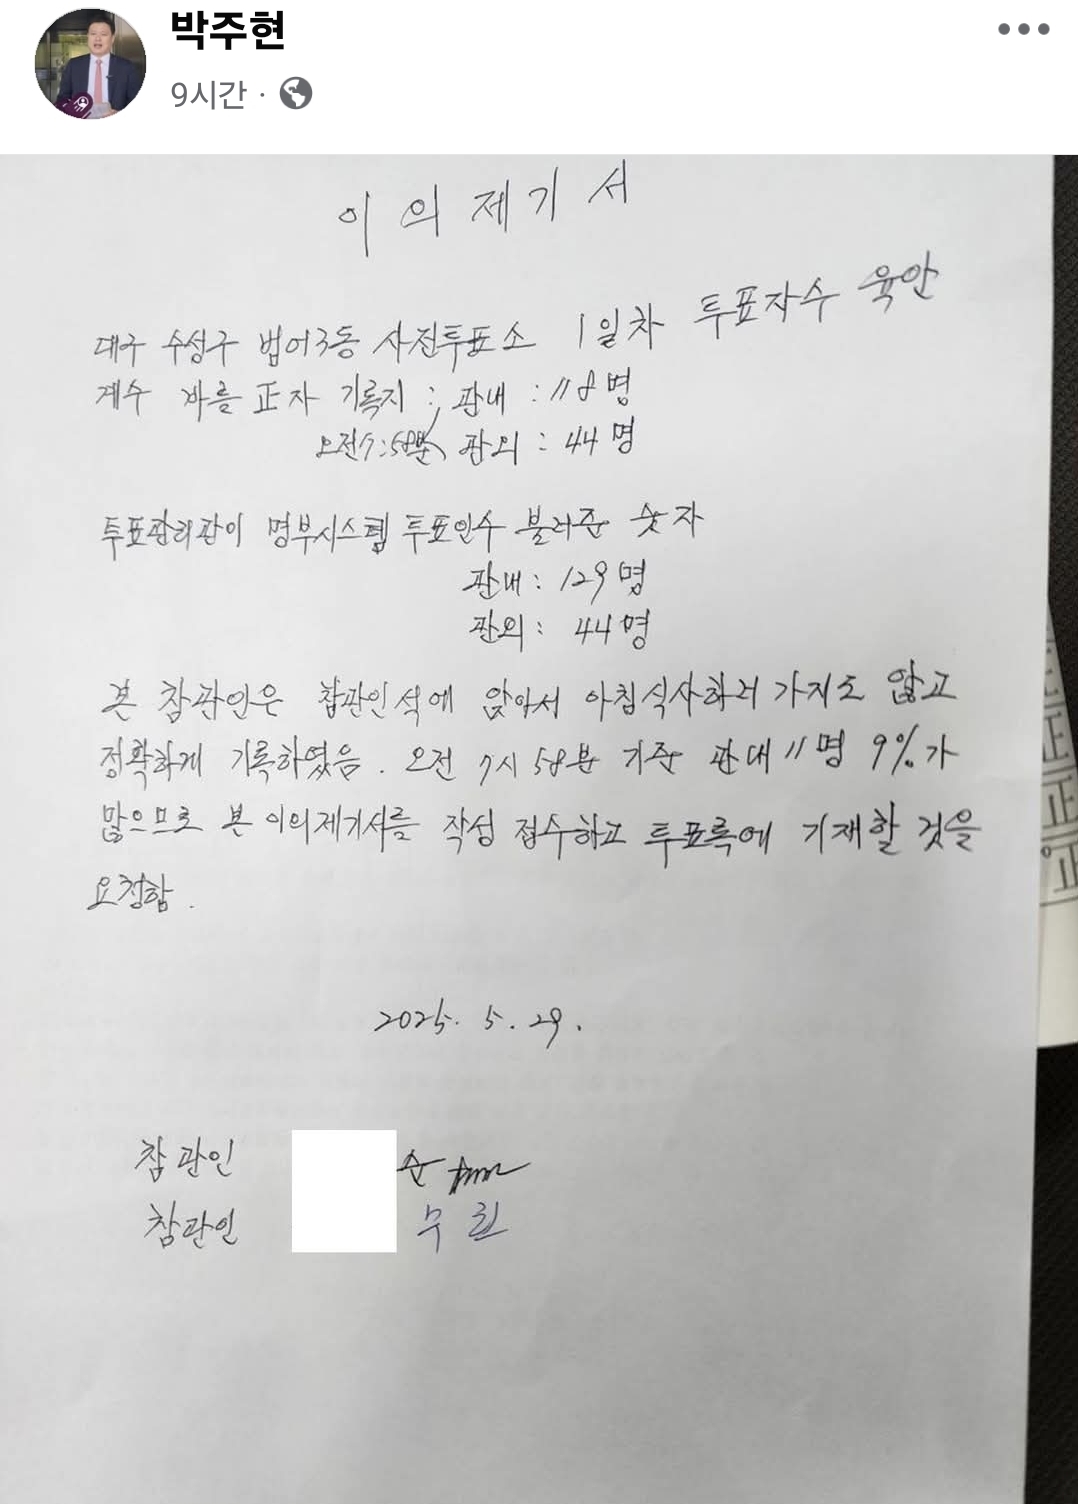 박주현
9시간 ·
이의제기서
대구 수성구 범어3동 사전투표소 1일차 투표자수 육안
계수 바를 正자 기록지 : 관내 : 118명
오전7:58분 관외 : 44명
투표관리관이 명부시스템 투표인수 불러준 숫자
관내 : 129명
관외 : 44명
본 참관인은 참관인석에 앉아서 아침식사하러 가지도 않고
정확하게 기록하였음. 오전 7시 58분 기준 관내 11명 9%가
많으므로 본 이의제기서를 작성 접수하고 투표록에 기재할 것을
요청함.
2025. 5. 29.
참관인 순
참관인
正
正
正